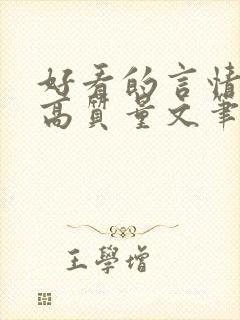 好看的言情
高质量文笔
王學增